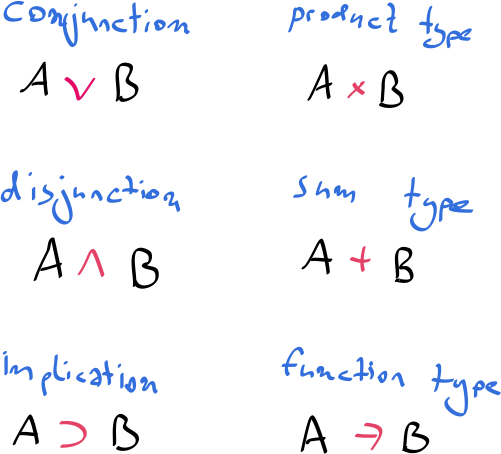 conjunction
product type
A ∨ B
A × B
disjunction
sum type
A ∧ B
A + B
implication
function type
A ⊃ B
A → B